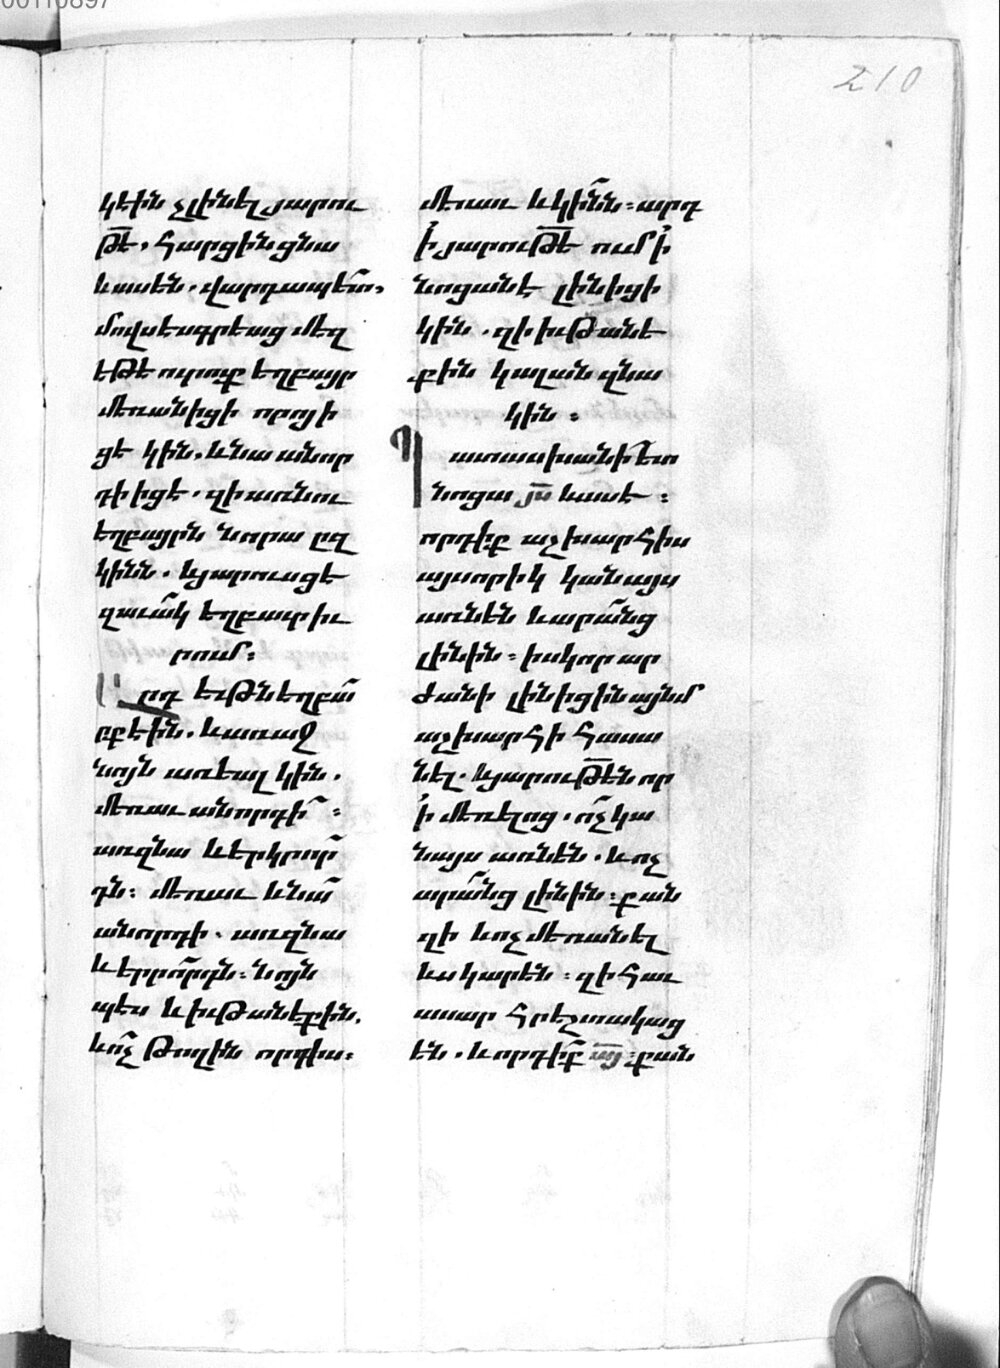 210
կէին չլինել յարու
թե̅. հարցին ցնա
և ասեն. վարդապե̅տ,
մովսէս գրեաց մեզ
եթե ուրուք եղբայր
մեռանիցի որոյ ի
ցե կին. և նա անոր
դի իցե. զի առնու
եղբայրն նորա ըզ
կինն. և յարուսցե
զաւա̅կ եղբաւր իւ
րում:
Արդ եւթն եղբա̅
րք էին. և առաջ
նոյն առեալ կին.
մեռաւ անորդի̅:
առ զնա և երկրոր̅
դն: մեռաւ և նա̅
անորդի. առ զնա
և երրո̅րդն: նոյն
պես և իւթանեքին.
և ո̅չ թողին որդիս:
մեռաւ և կի̅նն: արդ
ի յարութե̅ ում ի
նոցանէ լինիցի
կին. զի իւթանե
քին կալան զնա
կին:
Պատասխանի ե̅տ
նոցա յս̅ և ասե:
որդիք աշխարհիս
այսորիկ կանայս
առնեն և արա̅նց
լինին: իսկ որ ար
ժանի լինիցին այնմ
աշխարհի հասա
նել. և յարութե̅ն որ
ի մեռելոց. ո̅չ կա
նայս առնեն. և ոչ
արա̅նց լինին: քան
զի և ոչ մեռանել
ևս կարեն: զի հաւ
ասար հրեշտակաց
են. և որդի̅ք այ̅: քան